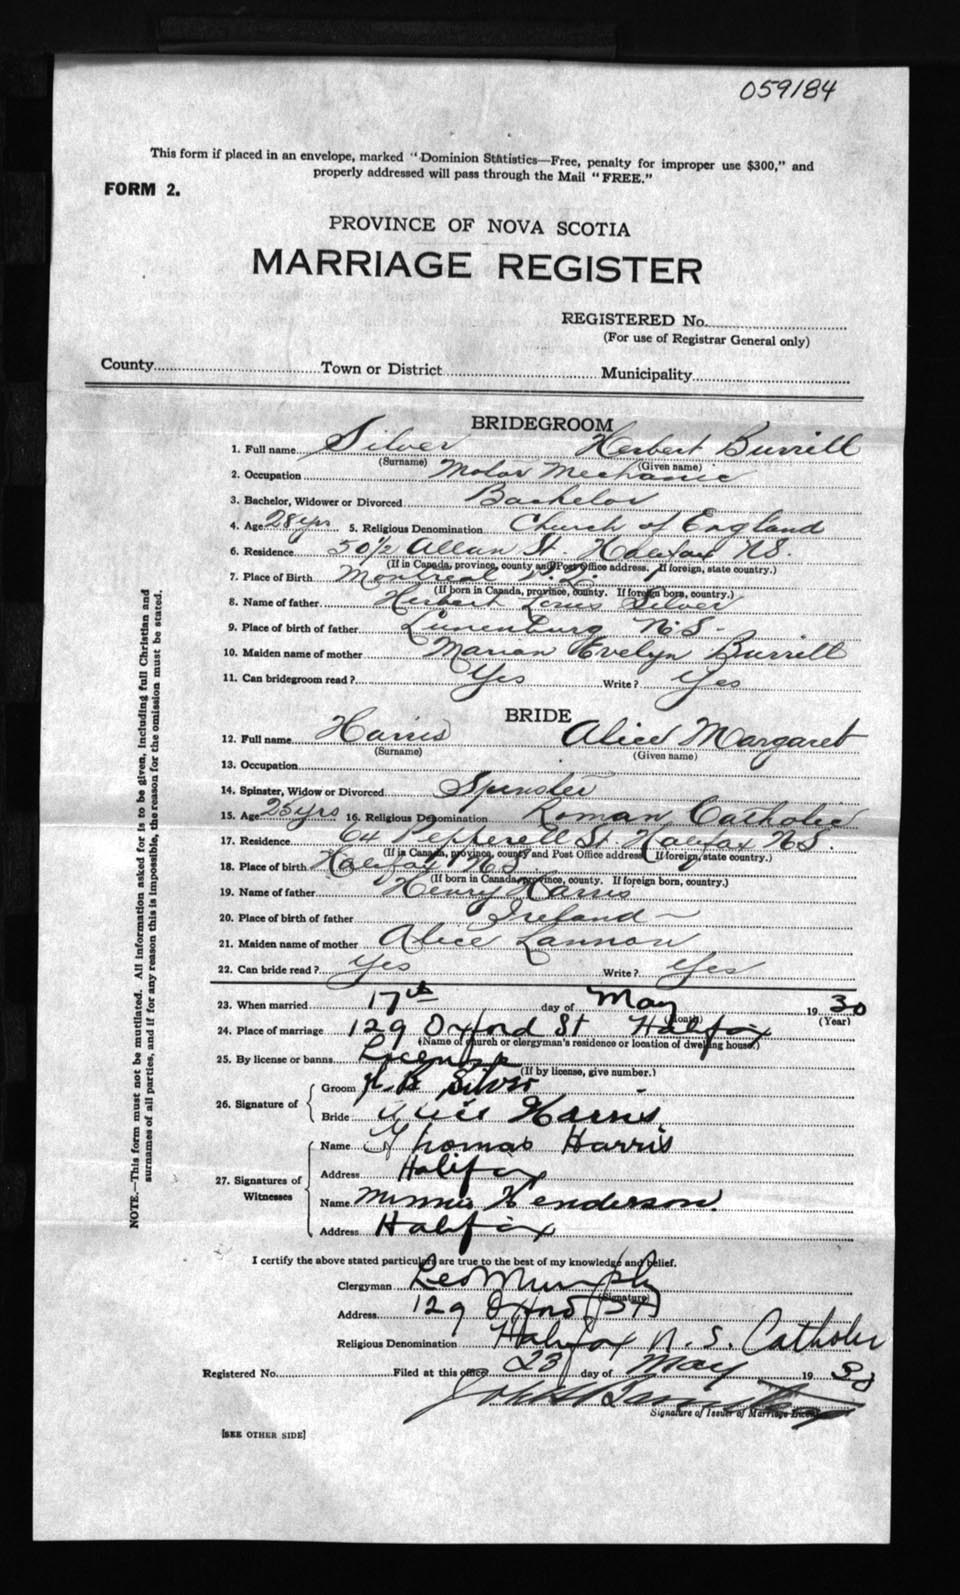 059184
This form if placed in an envelope, marked "Dominion Statistics—Free, penalty for improper use $300," and
properly addressed will pass through the Mail "FREE."
FORM 2.
PROVINCE OF NOVA SCOTIA
MARRIAGE REGISTER
REGISTERED No.
(For use of Registrar General only)
County Town or District Municipality
BRIDEGROOM
1. Full name Silver Herbert Burrill
(Surname) (Given name)
2. Occupation Motor Mechanic
3. Bachelor, Widower or Divorced Bachelor
4. Age 28 yrs 5. Religious Denomination Church of England
6. Residence 50½ Allan St. Halifax N.S.
(If in Canada, province, county and Post Office address. If foreign, state country.)
7. Place of Birth Montreal P.Q.
(If born in Canada, province, county. If foreign born, country.)
8. Name of father Herbert Louis Silver
9. Place of birth of father Lunenburg N.S.
10. Maiden name of mother Marian Evelyn Burrill
11. Can bridegroom read? Yes Write? Yes
BRIDE
12. Full name Harris Alice Margaret
(Surname) (Given name)
13. Occupation
14. Spinster, Widow or Divorced Spinster
15. Age 25 yrs 16. Religious Denomination Roman Catholic
17. Residence 64 Pepperell St Halifax N.S.
(If in Canada, province, county and Post Office address. If foreign, state country.)
18. Place of birth Halifax N.S.
(If born in Canada, province, county. If foreign born, country.)
19. Name of father Henry Harris
20. Place of birth of father Ireland
21. Maiden name of mother Alice Lannon
22. Can bride read? Yes Write? Yes
23. When married 17th day of May 1930
(Month) (Year)
24. Place of marriage 129 Oxford St Halifax
(Name of church or clergyman's residence or location of dwelling house.)
25. By license or banns License
(If by license, give number.)
26. Signature of Groom H. B. Silver
Bride Alice Harris
27. Signatures of Witnesses Name Thomas Harris
Address Halifax
Name Minnie Henderson.
Address Halifax
I certify the above stated particulars are true to the best of my knowledge and belief.
Clergyman Leo Murphy
(Signature)
Address 129 Oxford St
Religious Denomination Halifax N. S. Catholic
Registered No. Filed at this office 23 day of May 1930
John
Signature of Issuer of Marriage
[SEE OTHER SIDE]
NOTE.—This form must not be mutilated. All information asked for is to be given, including full Christian and
surnames of all parties, and if for any reason this is impossible, the reason for the omission must be stated.